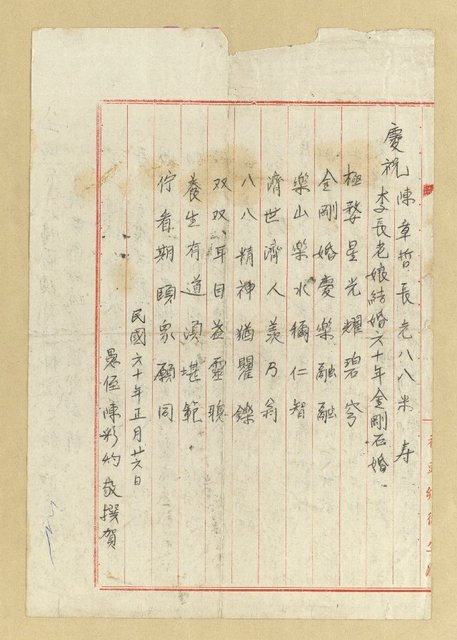 慶祝陳章哲長老八八米寿
李長老娘結婚六十年金剛石婚
極婺星光耀碧穹
金剛婚慶樂融融
樂山樂水稱仁智
濟世濟人羡乃翁
八八精神猶矍鑠
双双耳目益靈聰
養生有道須堪範
佇看期頤衆願同
民國六十年正月廿六日
愚侄陳彩灼敬撰賀